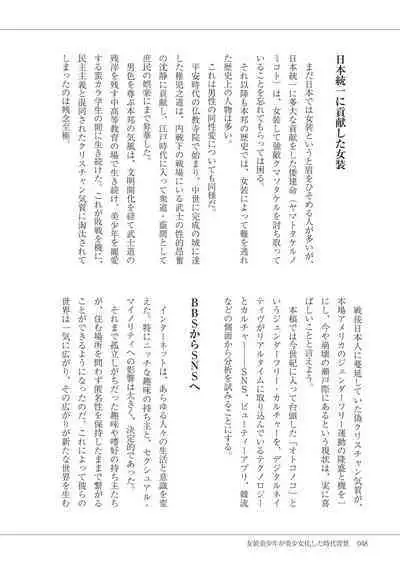 日本統一に貢献した女装
まだ日本では女装というと眉をひそめる人が多いが、
日本統一に多大な貢献をした倭建命（ヤマトタケルノ
ミコト）は、女装して強敵クマソタケルを討ち取って
いることを忘れてもらっては困る。
それ以降も本邦の歴史では、女装によって難を逃れ
た歴史上の人物は多い。
これは男性の同性愛についても同様だ。
平安時代の仏教寺院で始まり、中世に完成の域に達
した稚児之道は、内戦下の戦場にいる武士の性的昂奮
の沈静に貢献し、江戸時代に入って衆道・蔭間として
庶民の娯楽にまで昇華した。
男色を尊ぶ本邦の気風は、文明開化を経て武士道の
残滓を残す中高等教育の場で生き続け、美少年を寵愛
する蛮カラ学生の間に生き続けた。これが敗戦を機に、
民主主義と混同されたクリスチャン気質に淘汰されて
しまったのは残念至極。
戦後日本人に蔓延していた偽クリスチャン気質が、
本場アメリカのジェンダーフリー運動の隆盛と機を一
にし、今や崩壊の瀬戸際にあるという現状は、実に喜
ばしいことと言えよう。
本稿では今世紀に入って台頭した「オトコノコ」と
いうジェンダーフリー・カルチャーを、デジタルネイ
ティヴがリアルタイムに取り込んでいるテクノロジー
とカルチャー――SNS、ビューティーアプリ、韓流
などの側面から分析を試みることにする。
BBSからSNSへ
インターネットは、あらゆる人々の生活と意識を変
えた。特にニッチな趣味の持ち主と、セクシュアル・
マイノリティへの影響は大きく、決定的であった。
それまで孤立しがちだった趣味や嗜好の持ち主たち
が、住む場所を問わず匿名性を保持したままで繋がる
ことができるようになったのだ。これによって彼らの
世界は一気に広がり、その広がりが新たな世界を生む
女装美少年が美少女化した時代背景　048